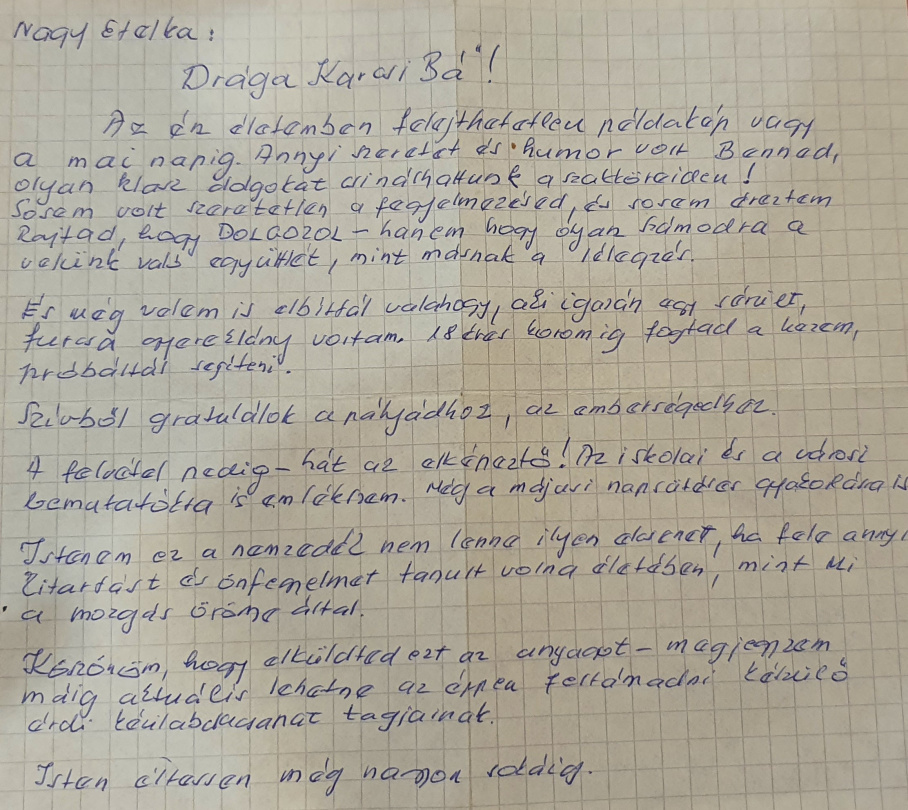 Nagy Etelka:
Drága Karcsi Bá"!
Az én életemben felejthetetlen példakép vagy
a mai napig. Annyi szeretet és humor volt Benned,
olyan klassz dolgokat csinálhattunk a szaktöreiden!
Sosem volt szeretetlen a fegyelmezésed, és sosem éreztem
Rajtad, hogy DOLGOZOL - hanem hogy olyan Számodra a
velünk való együttlét, mint másnak a lélegzés.
És még velem is elbírtál valahogy, aki igazán egy sérült,
fura gyereklány voltam. 18 éves koromig fogtad a kezem,
próbáltál segíteni.
Szívből gratulálok a pályádhoz, az emberségedhez.
A felvétel pedig - hát az elképesztő! Az iskolai és a városi
bemutatókra is emlékszem. Még a májusi napsütéses gyakorlásra is
Istenem ez a nemzedék nem lenne ilyen elesett, ha fele annyi
kitartást és önfegyelmet tanult volna életében, mint Mi
a mozgás öröme által.
Köszönöm, hogy elküldted ezt az anyagot - megjegyzem
máig aktuális lehetne az éppen feltámadni készülő
érdi kézilabdacsapat tagjainak.
Isten éltessen még nagyon sokáig.